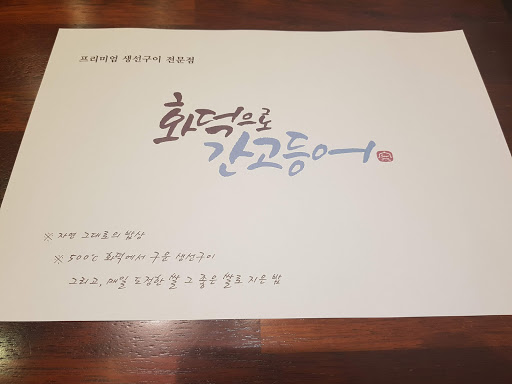 프리미엄 생선구이 전문점
화덕으로
간고등어
※ 자연 그대로의 밥상
※ 500℃ 화덕에서 구운 생선구이
그리고, 매일 도정한 쌀 그 좋은 쌀로 지은 밥